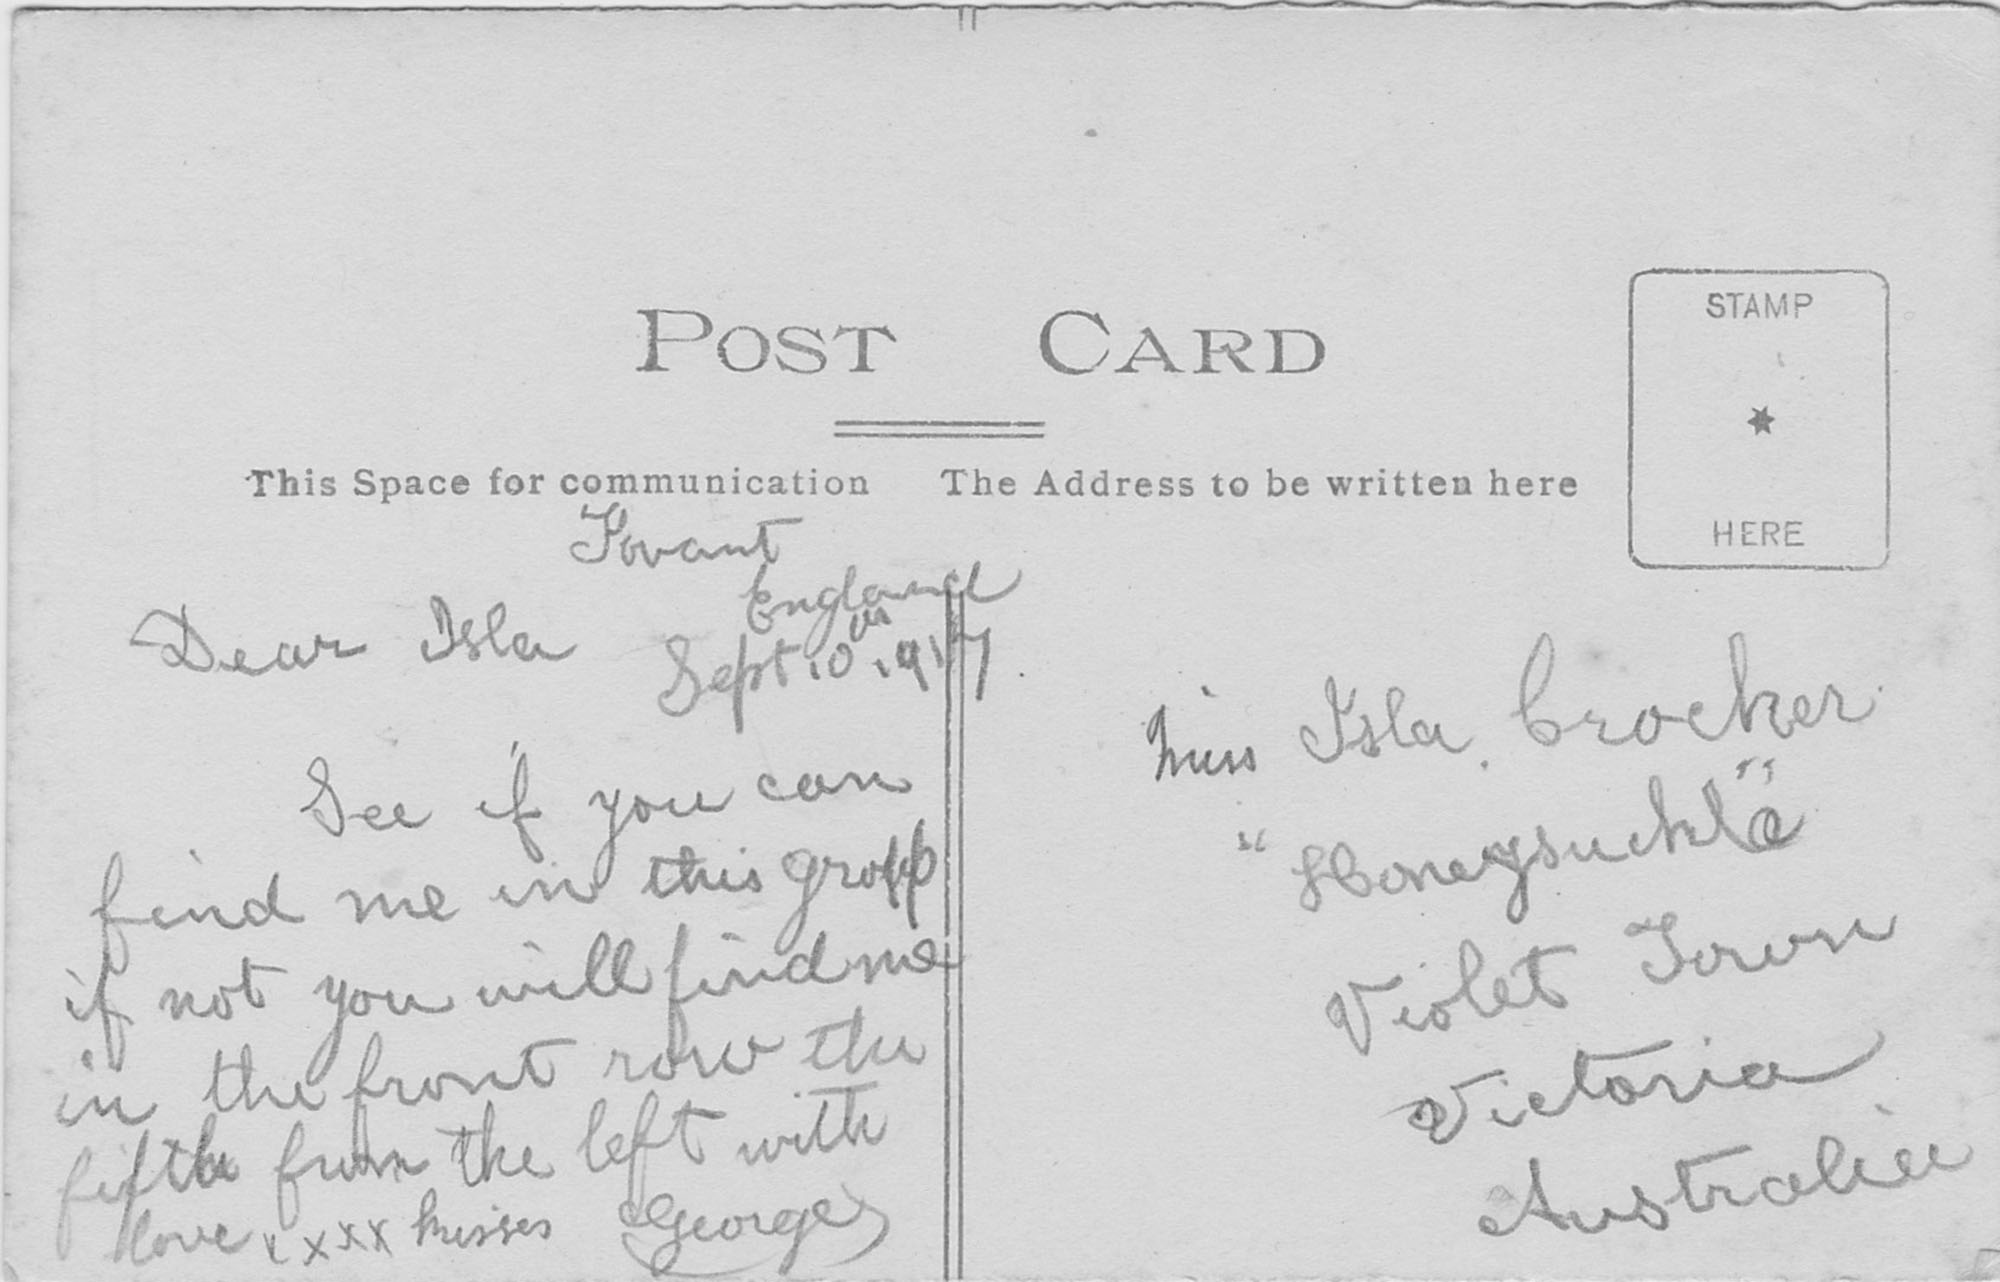 POST CARD
STAMP
HERE
This Space for communication
The Address to be written here
Fovant
England
Dear Isla
Sept 10th 1917.
See if you can
find me in this group
if not you will find me
in the front row the
fifth from the left with
love xxxx kisses George
Miss Isla Crocker
"Honeysuckle"
Violet Town
Victoria
Australia